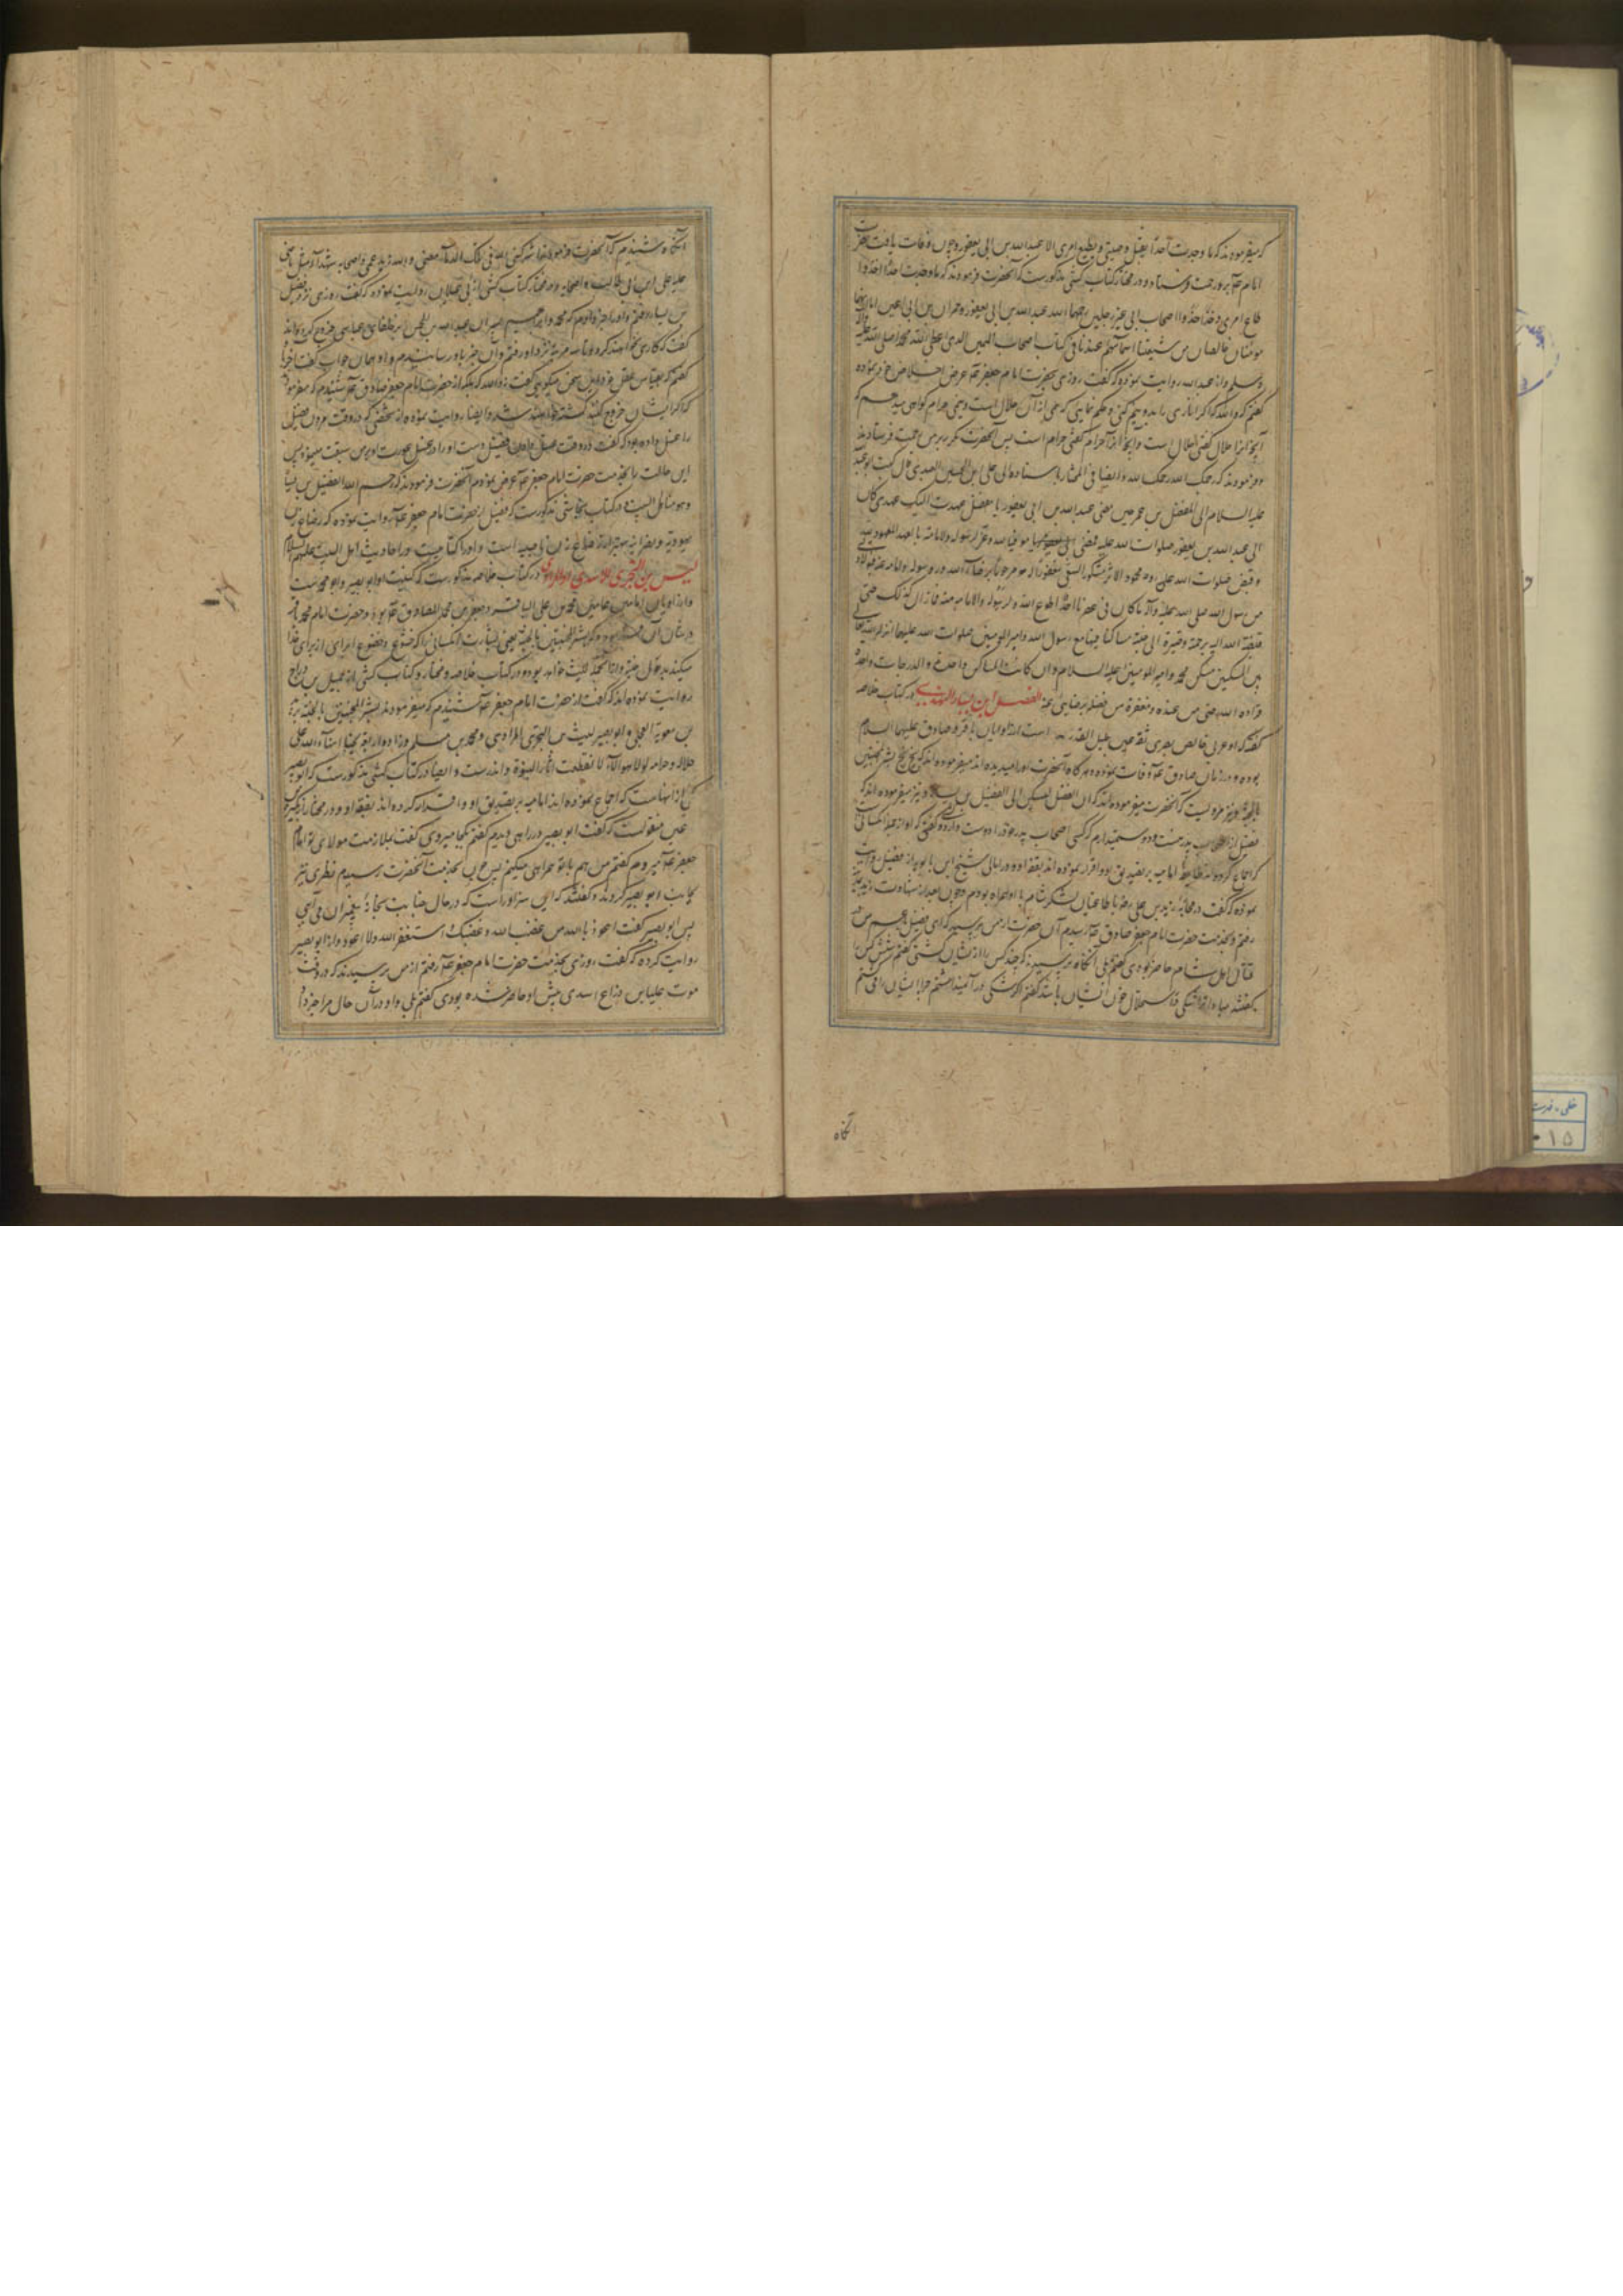 که میفرمودند که ما وجدت احدا یقبل وصیتی و یطیع امری الا عبدالله بن ابی یعفور و چون وفات یافت حضرت
امام عم برو رحمت فرستاد و در مختار کتاب کشی مذکورست که آنحضرت فرمودند که ما وجدت احدا اخذ
طاع امری و حذا حذو اصحاب ابی غیر رجلین رحمهما الله عبدالله بن ابی یعفور و حمران بن اعین اما انهما
مومنان خالصان من شیعتنا اسماؤهم عندنا فی کتاب اصحاب الیمین الذی اعطی الله محمدا صلی الله علیه وآله
وسلم و از عبدالله روایت نموده که گفت روزی بحضرت امام جعفر عم عرض اخلاص خود نموده
گفتم که والله که اگر اناری را بدو نیم کنی و حکم نمایی که نیمی از آن حلال است و نیمی حرام گواهی میدهم که
آنچه آنرا حلال گفتی حلال است و آنچه آنرا حرام گفتی حرام است پس آنحضرت مکرر برمن رحمت فرستادند
و فرمودند که رحمک الله رحمک الله و ایضا فی المختار باسناده الی علی بن الحسین العبدی قال کتب ابو عبدالله
علیه السلام الی المفضل بن عمر حین مضی عبدالله بن ابی یعفور یا مفضل عهدت الیک عهدی کان
الی عبدالله بن یعفور صلوات الله علیه فمضی موفیا لله عز و لرسوله و لامامه بالعهد المعهود لله
و قبض صلوات الله علی روحه محمود الاثر مشکور السعی مغفورا له مرحوما برضاء الله و رسوله و امامه عنه فبولادتی
من رسول الله صلی الله علیه وآله ما کان فی عصرنا احد اطوع لله و لرسوله و لامامه منه فما زال کذلک حتی
قبضه الله الیه برحمته و صیره الی جنته ساکنا فیها مع رسول الله و امیرالمومنین صلوات الله علیهما انزله الله تعالی
بین المسکنین مسکن محمد و امیرالمومنین علیه السلام و ان کانت المساکن واحدة و الدرجات واحدة
فزاده الله رضی من عنده و مغفرة من فضله برضایی عنه الفضیل ابن یسار النهدی در کتاب خلاصه
گفته که او عربی خالص بصری ثقه عین جلیل القدر است از راویان باقر و صادق علیهما السلام
بوده و در زمان صادق عم وفات نموده و هرگاه آنحضرت اورا میدیده اند میفرموده اند که بخ بخ بشر المخبتین
بالجنة و نیز مرویست که آنحضرت میفرموده اند که ان الارض لتسکن الی الفضیل بن یسار و نیز میفرموده اند که
فضیل از اصحاب پدر منست و دوست میدارم که کسی اصحاب پدر خود را دوست دارد و کشی گفته که او از جمله کسانی است
که اجماع کرده اند طایفه امامیه بر تصدیق او و اقرار نموده اند بفقه او و در امالی شیخ ابن بابویه از فضیل روایت
نموده که گفت در محاربه زید بن علی رضه با طاغیان لشکر شام با او همراه بودم و چون بعد از شهادت زید بمدینه
رفتم و بخدمت حضرت امام جعفر صادق عم رسیدم آن حضرت از من پرسید که ای فضیل با عم من در
قتال اهل شام حاضر بودی گفتم بلی آنگاه پرسید که چند کس را از ایشان کشتی گفتم شش کس را
گفتند مبادا ترا شکی در استحلال خون ایشان باشد گفتم اگر شکی در آن میداشتم چرا ایشان را می کشتم
آنگاه
آنگاه شنیدم که آنحضرت فرمودند اشرکنی الله فی تلک الدماء مضی والله زید عمی و اصحابه شهداء مثل ما مضی
علیه علی ابن ابی طالب و اصحابه و در مختار کتاب کشی از ابی عیلان روایت نموده که گفت روزی نزد فضیل
بن یسار رفتم و اورا خبر دادم که محمد و ابراهیم پسران عبدالله بن الحسن بر خلفای عباسی خروج کرده اند
گفت که کاری نخواهند کرد و تا سه مرتبه نزد او رفتم و آن خبر باو رسانیدم و او همان جواب گفت آخر
گفتم که بقیاس عقل خود این سخن میگویی گفت نه والله که بلکه از حضرت امام جعفر صادق عم شنیدم که میفرمود
که اگر ایشان خروج کنند کشته خواهند شد و ایضا روایت نموده از شخصی که در وقت مردن فضیل
را غسل داده بود که گفت در وقت غسل دادن فضیل دست او را در غسل عورت او بر من سبقت مینمود پس
این حالت را بخدمت حضرت امام جعفر عم عرض نمودم آنحضرت فرمودند که رحم الله الفضیل بن یسار
و هو منا اهل البیت و در کتاب نجاشی مذکورست که فضیل از حضرت امام جعفر عم روایت نموده که رضاع زن
یهودیه و نصرانیه بهتر از رضاع زن ناصبیه است و او را کتابیست در احادیث اهل البیت علیهم السلام
لیث بن البختری الاسدی المرادی در کتاب خلاصه مذکورست که کنیت او ابو بصیر و ابو محمدست
و از راویان امامین همامین محمد بن علی الباقر و جعفر بن محمد الصادق عم بود و حضرت امام محمد باقر
در شان او فرموده که بشر المخبتین بالجنة یعنی بشارت ده کسانی را که خشوع و خضوع از برای خدا
میکنند بدخول جنت و از آنجمله لیث خواهد بود و در کتاب خلاصه و مختار و کتاب کشی از جمیل بن دراج
روایت نموده اند که گفت از حضرت امام جعفر عم شنیدم که میفرمودند بشر المخبتین بالجنة برید
بن معویة العجلی و ابو بصیر لیث بن البختری المرادی و محمد بن مسلم و زراره اربعة نجبا امناء الله علی
حلاله و حرامه لولا هؤلاء لانقطعت آثار النبوة و اندرست و ایضا در کتاب کشی مذکورست که ابو بصیر
یکی از آنهاست که اجماع نموده اند امامیه بر تصدیق او و اقرار کرده اند بفقه او و در مختار از بکیر
عین منقولست که گفت ابو بصیر را در راهی دیدم گفتم بکجا میروی گفت بملازمت مولای تو امام
جعفر عم میروم گفتم من هم با تو همراهی میکنم پس چون بخدمت آنحضرت رسیدیم نظری تیز
بجانب ابو بصیر کردند و گفتند که این سزاوراست که در حال جنابت بخانهٔ پیغمبران می آیی
پس ابو بصیر گفت اعوذ بالله من غضب الله و غضبک استغفر الله و لا اعود و از ابو بصیر
روایت کرده که گفت روزی بخدمت حضرت امام جعفر عم رفتم از من پرسیدند که در وقت
موت علیا بن دراع اسدی پیش او حاضر شده بودی گفتم بلی و او در آن حال مرا خبر داد